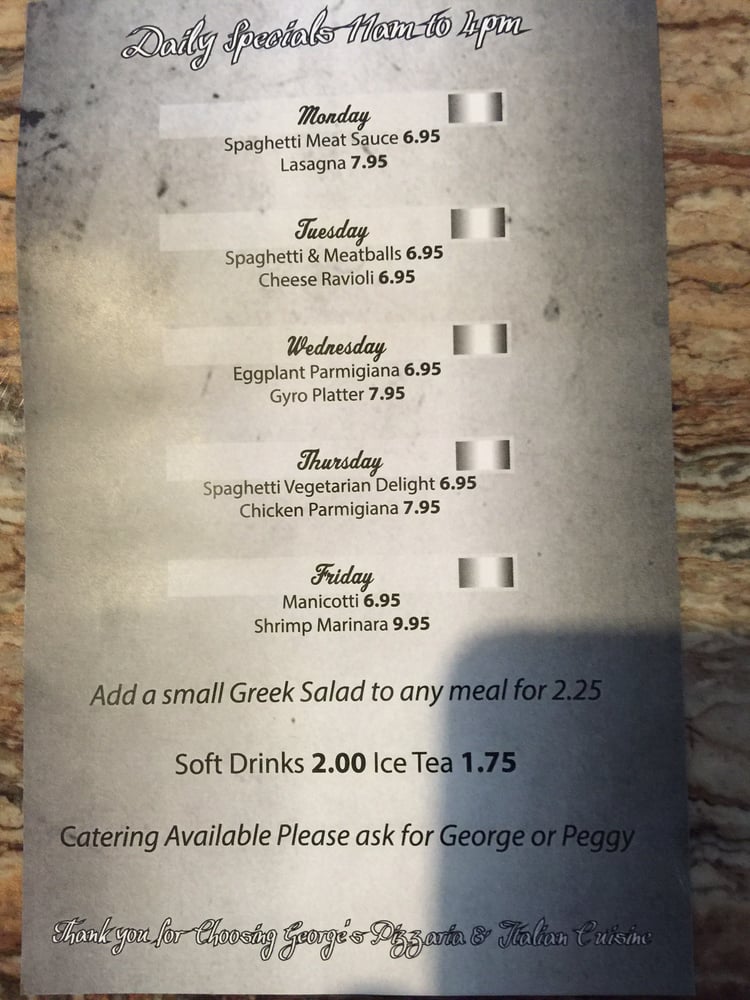 Daily Specials 11am to 4pm
Monday
Spaghetti Meat Sauce 6.95
Lasagna 7.95
Tuesday
Spaghetti & Meatballs 6.95
Cheese Ravioli 6.95
Wednesday
Eggplant Parmigiana 6.95
Gyro Platter 7.95
Thursday
Spaghetti Vegetarian Delight 6.95
Chicken Parmigiana 7.95
Friday
Manicotti 6.95
Shrimp Marinara 9.95
Add a small Greek Salad to any meal for 2.25
Soft Drinks 2.00 Ice Tea 1.75
Catering Available Please ask for George or Peggy
Thank you for Choosing George's Pizzaria & Italian Cuisine